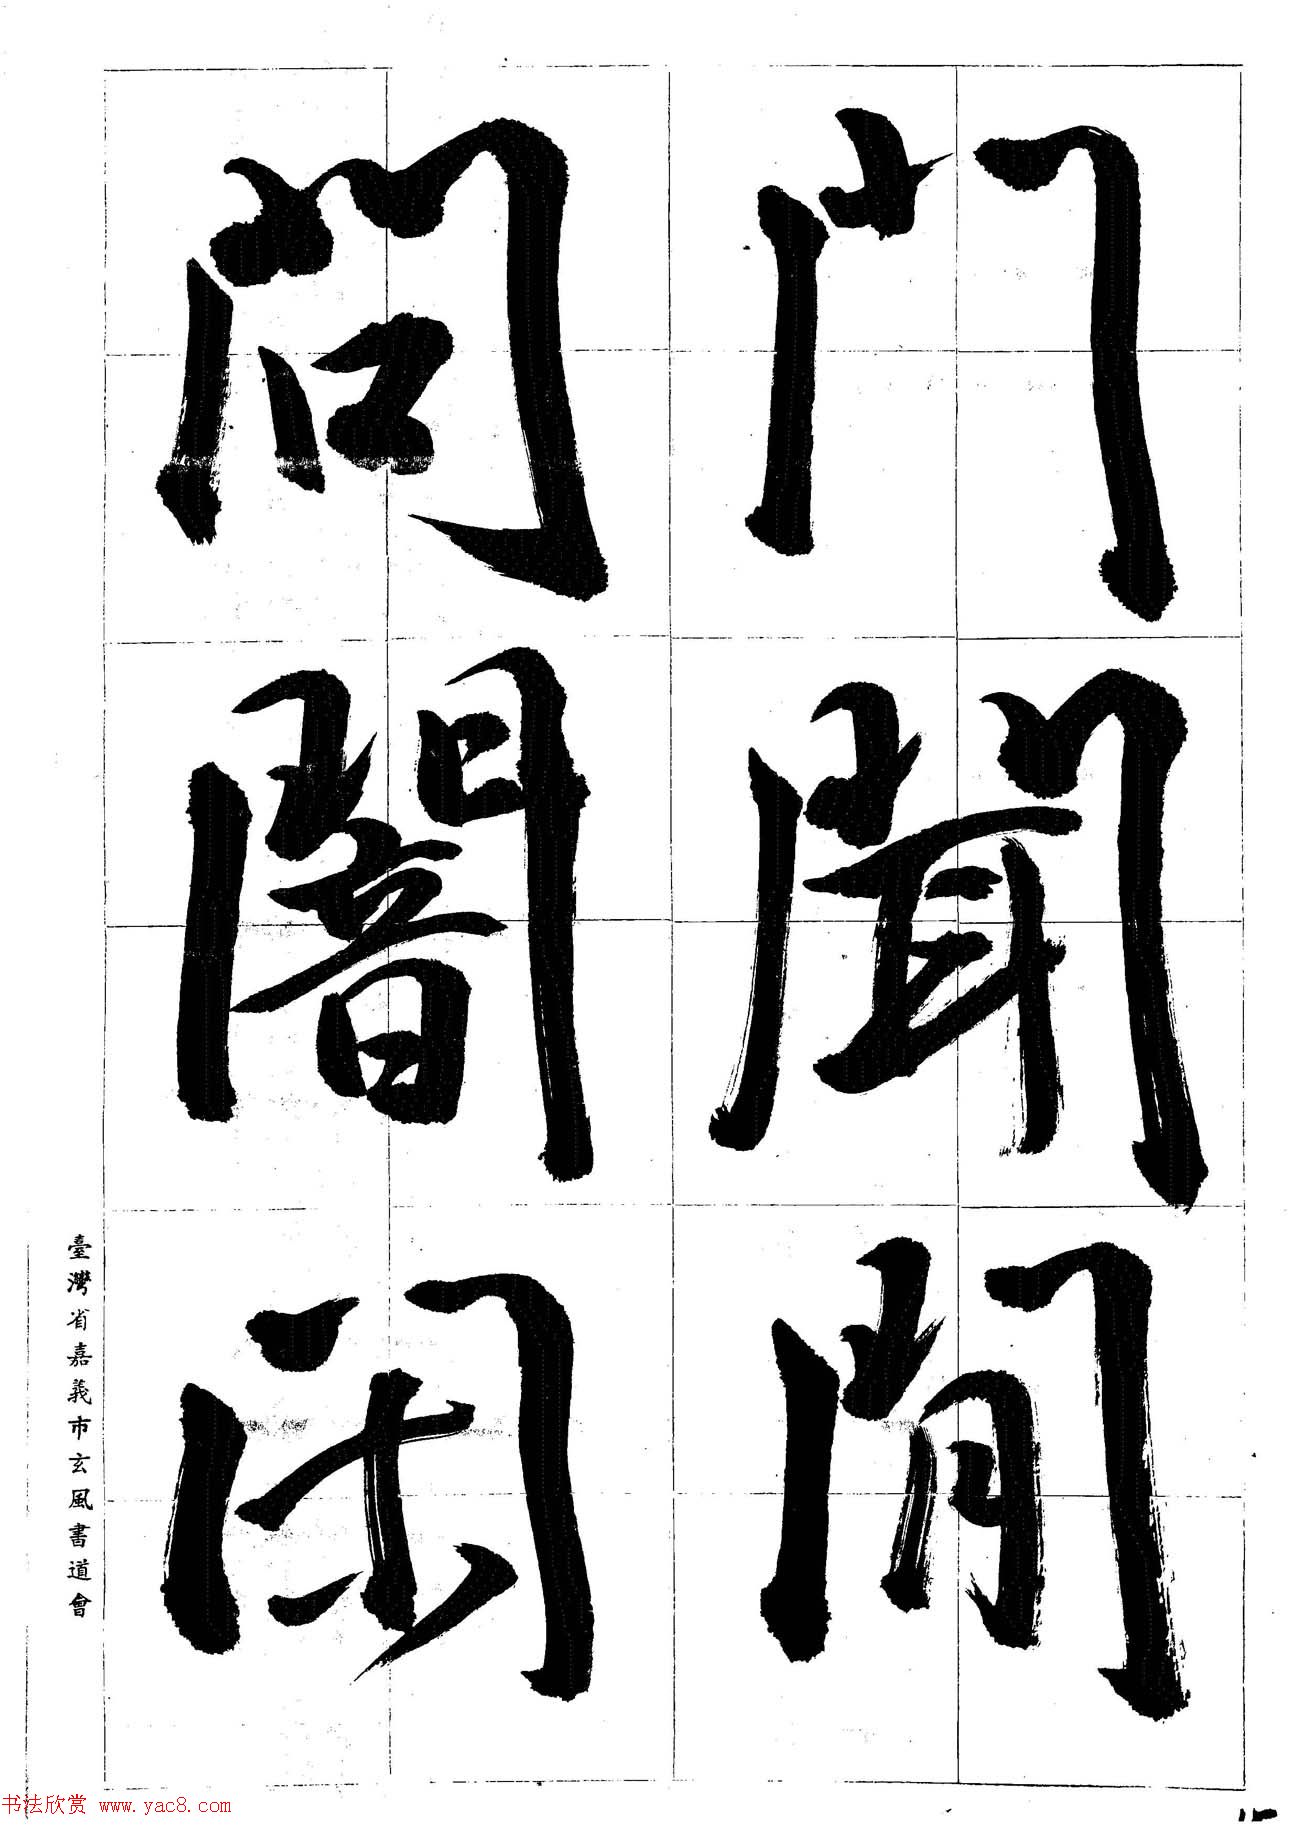 門聞閒
問闇閑
臺灣省嘉義市玄風書道會
书法欣赏 www.yac8.com